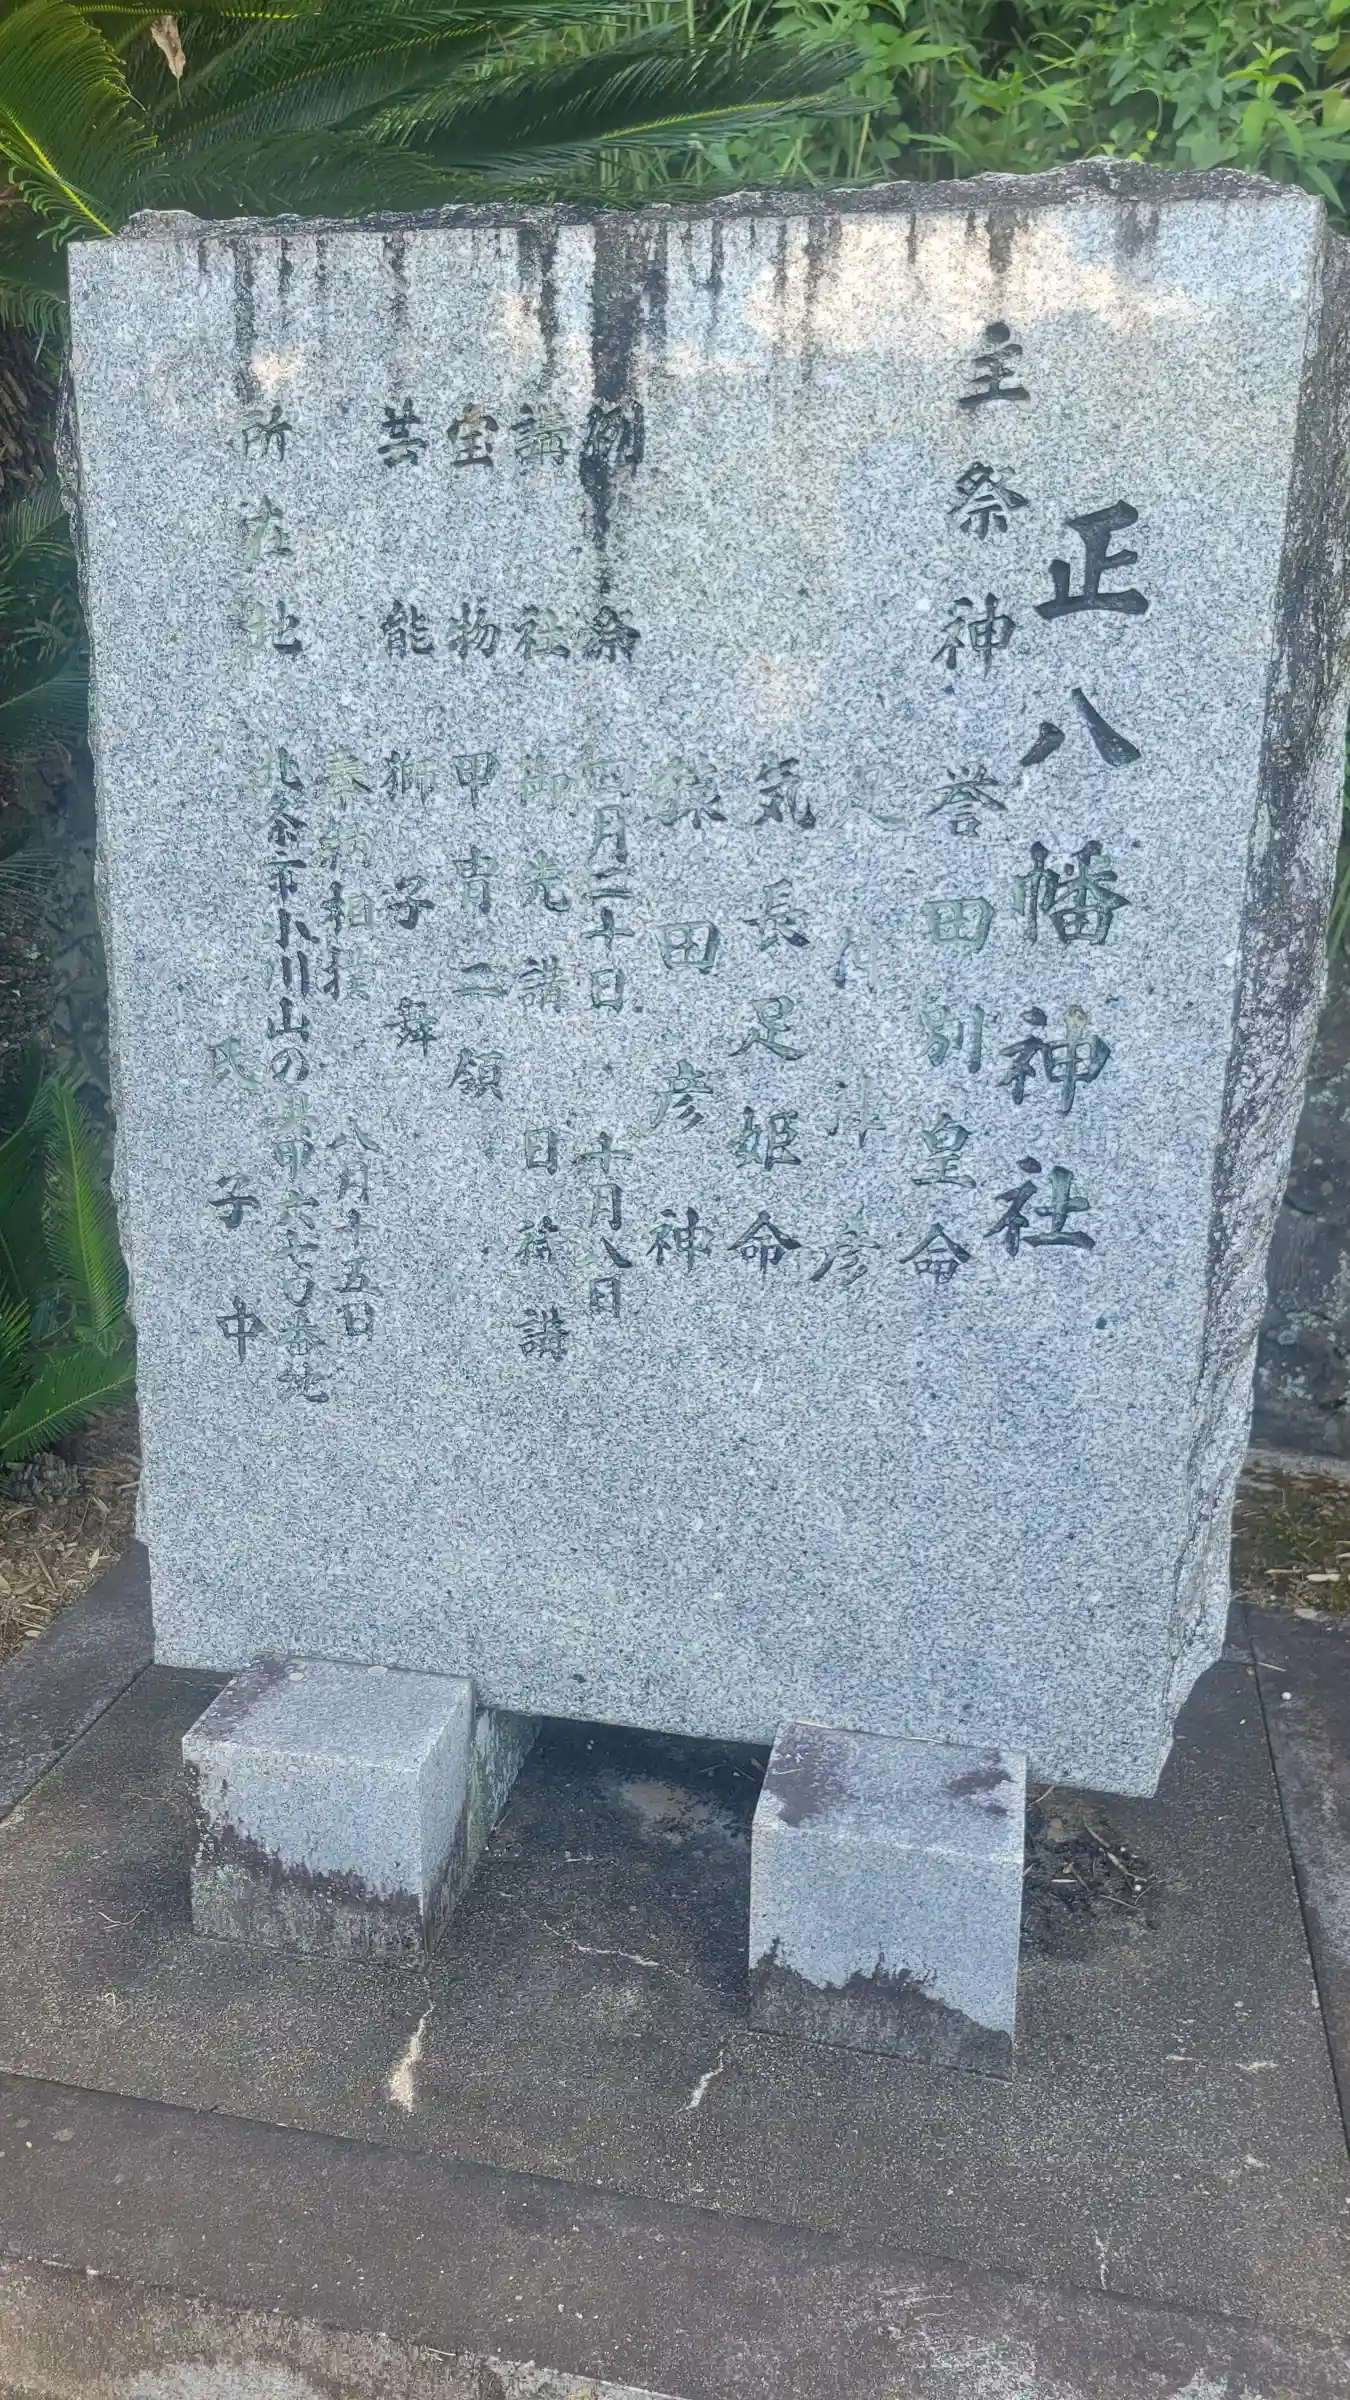 正八幡神社
主祭神 誉田別皇命
足仲津彦
気長足姫命
猿田彦神
例祭 四月二十日 十月八日
講社 御光講 日待講
宝物 甲冑二領
芸能 獅子舞
奉納相撲 八月十五日
所在地 北条市小川山の 六七〇番地
氏子中